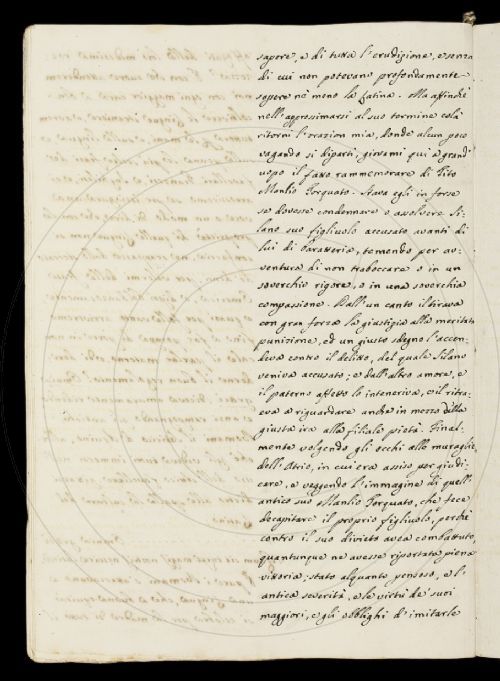 sapere, e di tutta l'erudizione, e senza
di cui non potevano profondamente
sapere nè meno la latina. Ma affinchè
nell'approssimarsi al suo termine colà
ritorni l'orazion mia, donde alcun poco
vagando si dipartì, giovami quì a grand'
uopo il fatto rammemorare di Tito
Manlio Torquato. Stava egli in forse
se dovesse condennare o assolvere Si-
lano suo figliuolo accusato avanti di
lui di baratteria, temendo per av-
ventura di non traboccare o in un
soverchio rigore, o in una soverchia
compassione. Dall'un canto il tirava
con gran forza la giustizia alla meritata
punizione, ed un giusto sdegno l'accen-
deva contro il delitto, del quale Silano
veniva accusato; e dall'altro amore, e
il paterno affetto lo inteneriva, e il ritra-
eva a riguardare anche in mezzo della
giusta ira alla filiale pietà. Final-
mente volgendo gli occhi alle muraglie
dell'Atrio, in cui era assiso per giudi-
care, e veggendo l'immagine di quell'
antico suo Manlio Torquato, che fece
decapitare il proprio figliuolo, perchè
contro il suo divieto avea combattuto,
quantunque ne avesse riportata piena
vittoria; stato alquanto pensoso, e l'
antica severità, e le virtù de' suoi
maggiori, e gli obblighi d'imitarle